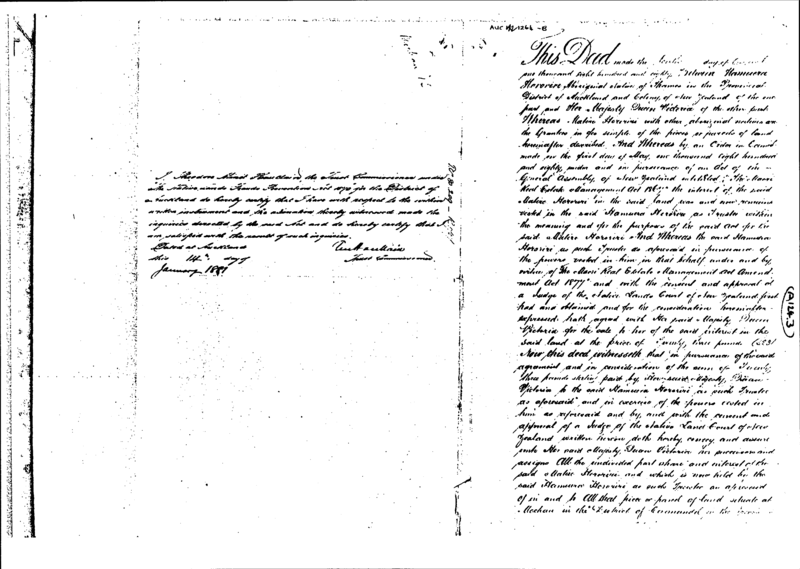 AUC 1264-B
I Theodore Minet Haultain, the Trust Commissioner under
the Native Lands Frauds Prevention Act for the District of
Auckland do hereby certify that I have with respect to the within
written instrument and the alienation thereby witnessed made the
inquiries directed by the said Act and do hereby certify that I
am satisfied with the result of such inquiries.
Dated at Auckland
this 14th day of
January 1881
Trust Commissioner
This Deed made the day of
one thousand eight hundred and eighty Between Hamuera
Hororiri Aboriginal Native of Thames in the Provincial
District of Auckland and Colony of New Zealand of the one
part and Her Majesty Queen Victoria of the other part.
Whereas Matire Hororiri with other aboriginal natives are
the Grantees in fee simple of the pieces or parcels of land
hereinafter described. And Whereas by an Order in Council
made on the first day of May, one thousand eight hundred
and eighty under and in pursuance of an Act of the
General Assembly of New Zealand intituled "The Maori
Real Estate Management Act 1867" the interest of the said
Matire Hororiri in the said land was and now remains
vested in the said Hamuera Hororiri as Trustee within
the meaning and for the purposes of the said Act for the
said Matire Hororiri And Whereas the said Hamuera
Hororiri as such Trustee as aforesaid in pursuance of
the powers vested in him in that behalf under and by
virtue of The Maori Real Estate Management Act Amend-
ment Act 1877 and with the consent and approval of
a Judge of the Native Lands Court of New Zealand first
had and obtained and for the consideration hereinafter
expressed hath agreed with Her said Majesty Queen
Victoria for the sale to her of the said interest in the
said land at the price of Twenty three pounds (£23)
Now this deed witnesseth that in pursuance of the said
agreement and in consideration of the sum of Twenty
three pounds sterling paid by Her said Majesty Queen
Victoria to the said Hamuera Hororiri as such Trustee
as aforesaid and in exercise of the powers vested in
him as aforesaid and by and with the consent and
approval of a Judge of the Native Land Court of New
Zealand written hereon doth hereby convey and assure
unto Her said Majesty Queen Victoria her successors and
assigns All the undivided part share and interest of the
said Matire Hororiri and which is now held by the
said Hamuera Hororiri as such Trustee as aforesaid
of in and to All that piece or parcel of land situate at
Moehau in the District of Coromandel in the
(A124.3)